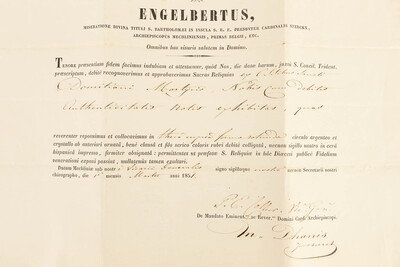 ENGELBERTUS,
MISERATIONE DIVINA TITULI S. BARTHOLOMÆI IN INSULA S. R. E. PRESBYTER CARDINALIS STERCKX,
ARCHIEPISCOPUS MECHLINIENSIS, PRIMAS BELGII, ETC.
Omnibus has visuris salutem in Domino.
TENORE præsentium fidem facimus indubiam et attestamur, quod Nos, die datæ harum, juxta S. Concil. Trident.
præscriptum, debitè recognoverimus et approbaverimus Sacras Reliquias ex Ossibus Sancti
Domitiani Martyris Nobis cum debitis
authenticitatis notis exhibitas, quas
reverenter reposuimus et collocavimus in theca cuprea formæ rotundæ circulo argenteo et
crystallo ab anteriori ornatâ, benè clausâ et filo serico coloris rubri debitè colligatâ, necnon sigillo nostro in cerâ
hispanicâ impresso, firmiter obsignatâ; permittentes ut præfatæ S. Reliquiæ in hâc Diœcesi publicæ Fidelium
venerationi exponi possint, nullatenus tamen osculari.
Datum Mechliniæ sub nostri signo sigilloque necnon Secretarii nostri
chirographo, die mensis Martii anni
De Mandato Eminent. ac Rever. Domini Card. Archiepiscopi.